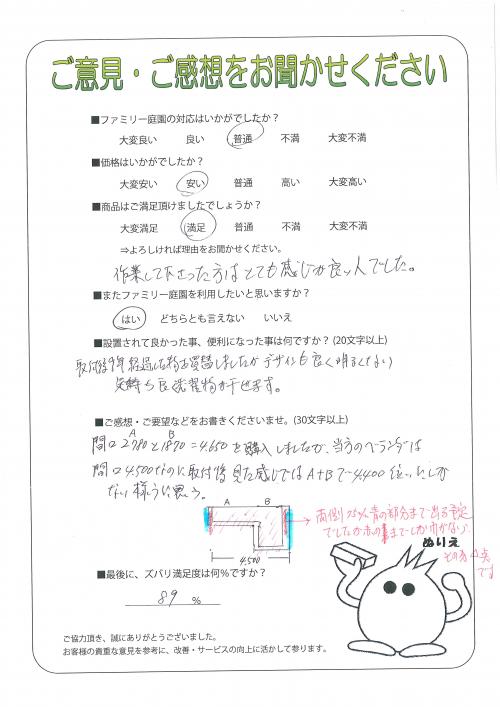 ご意見・ご感想をお聞かせください
■ファミリー庭園の対応はいかがでしたか？
大変良い 良い 普通 不満 大変不満
■価格はいかがでしたか？
大変安い 安い 普通 高い 大変高い
■商品はご満足頂けましたでしょうか？
大変満足 満足 普通 不満 大変不満
⇒よろしければ理由をお聞かせください。
作業して下さった方はとても感じが良い人でした。
■またファミリー庭園を利用したいと思いますか？
はい どちらとも言えない いいえ
■設置されて良かった事、便利になった事は何ですか？(20文字以上)
取付後 年経過した物を買替しましたがデザインも良く明るくなり
も良く洗濯物が干せます。
■ご感想・ご要望などをお書きくださいませ。(30文字以上)
A B
間口2780と1870=4.650を購入しましたが、当方のベランダは
間口4.500なのに取付後見た感じではA+Bで4.400位いしか
ない様に思う。
A B
4.500
両側 青の部分まで出る予定
でしたが赤の までしか巾がない
その為 点
です
ぬりえ
■最後に、ズバリ満足度は何%ですか？
89 %
ご協力頂き、誠にありがとうございました。
お客様の貴重な意見を参考に、改善・サービスの向上に活かして参ります。